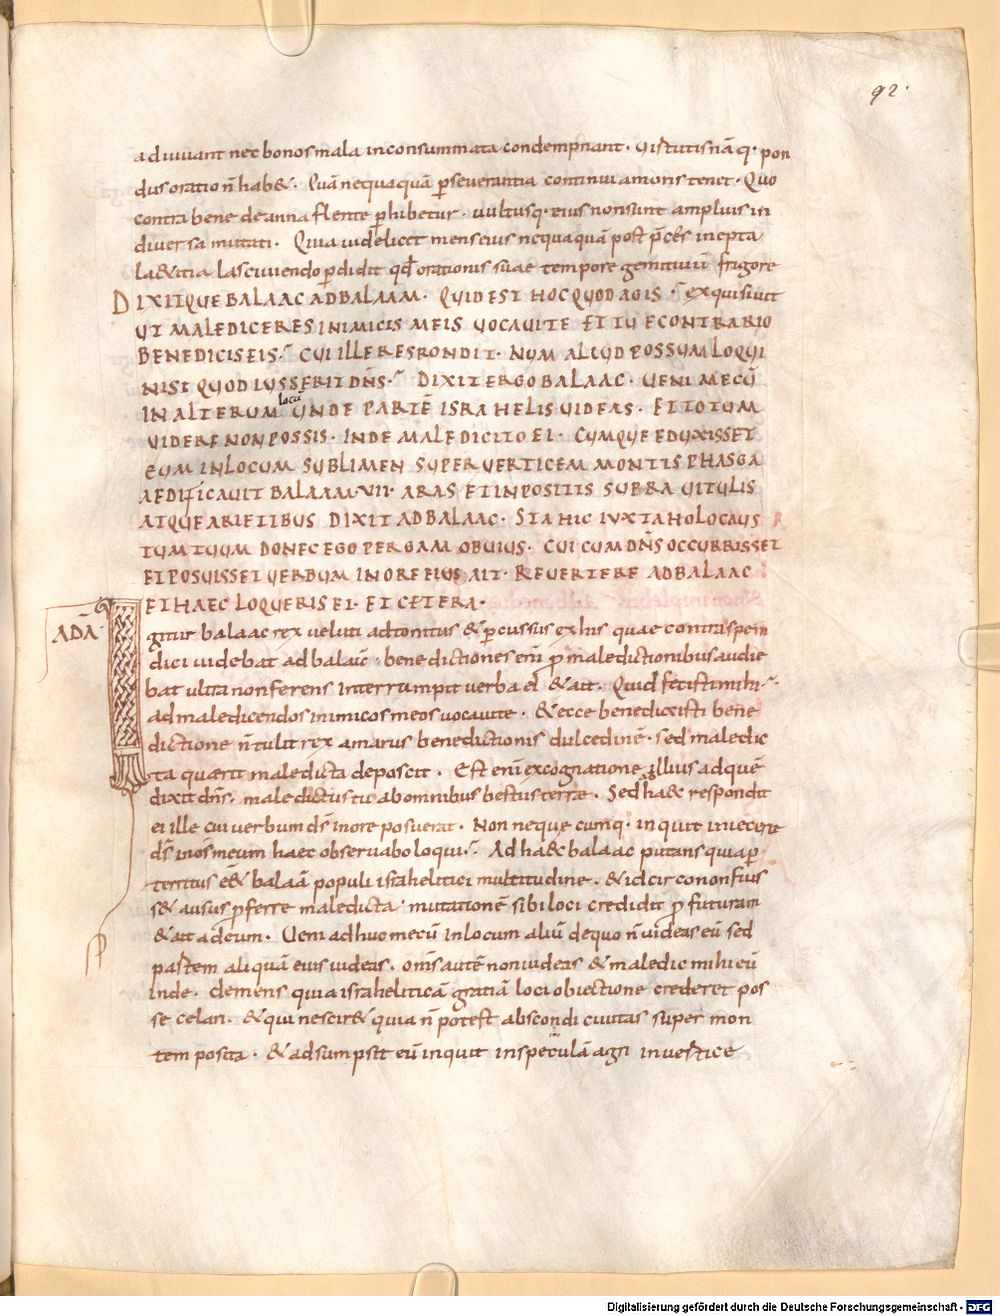 92.
adiuuant nec bonos mala inconsummata condempnant. Gistutis nā q. pon
dus oratio n̄ hab&. Quā nequaquā p̄seuerantia continui amoris tenet. Quo
contra bene de anna flente p̄hibetur. uultusq. eius non sunt amplius in
diuersa mutati. Quia uidelicet mens eius nequaquā post p̄ces inepta
la&itia lasciuiendo p̄didit qd̄ orationis suae tempore gemituum frigore
DIXITQUE BALAAC AD BALAAM. QUID EST HOC QUOD AGIS. exquisiuit
UT MALEDICERES INIMICIS MEIS UOCAUI TE ET TU ECONTRARIO
BENEDICIS EIS. CUI ILLE RESPONDIT. NUM ALIUD POSSUM LOQUI
NISI QUOD IUSSERIT DN̄S. DIXIT ERGO BALAAC. UENI MECŪ
IN ALTERUM locū UNDE PARTĒ ISRAHELIS UIDEAS. ET TOTUM
UIDERE NON POSSIS. INDE MALEDICITO EI. CUMQUE EDUXISSET
EUM IN LOCUM SUBLIMEN SUPER UERTICEM MONTIS PHASGA
AEDIFICAUIT BALAAM. VII. ARAS ET INPOSITIS SUPRA UITULIS
ATQUE ARIETIBUS DIXIT AD BALAAC. STA HIC IUXTA HOLOCAUS
TUM TUUM DONEC EGO PERGAM OBUIUS. CUI CUM DN̄S OCCURRISSET
ET POSUISSET UERBUM IN ORE EIUS AIT. REUERTERE AD BALAAC
ET HAEC LOQUERIS EI. ET CETERA.
ADĀ
Igitur balaac rex ueluti adtonitus & p̄cussus ex his quae contra spem
dici uidebat ad balaā. benedictiones enī p̄ maledictionibus audie
bat ultra non ferens interrumpit uerba ei & ait. Quid fecisti mihi.
ad maledicendos inimicos meos uocaui te. & ecce benedixisti bene
dictione n̄ tulit rex amarus benedictionis dulcedinē. sed maledic
ta quaerit maledicta deposcit. Est enī ex cognatione illius ad quē
dixit dn̄s. maledictus tu ab omnibus bestiis terrae. Sed ha&c respondit
ei ille cui uerbum ds̄ in ore posuerat. Non neque cumq. inquit iniecerit
ds̄ in os meum haec obseruabo loqui. Ad ha&c balaac putans quia p̄
territus e&̄ balaā populi israhelitici multitudine. & idcirco non fuis
s& ausus p̄ferre maledicta. mutationē sibi loci credidit p̄futuram
& ait ad eum. Ueni adhuc mecū in locum aliū de quo n̄ uideas eū sed
partem aliquā eius uideas. oms̄ autē non uideas & maledic mihi eū
inde. clemens quia israheliticā gratiā loci obiectione crederet pos
se celari. & qui nescir& quia n̄ potest abscondi ciuitas super mon
tem posita. & adsumpsit eū inquit in speculā agri in uertice
Digitalisierung gefördert durch die Deutsche Forschungsgemeinschaft - DFG